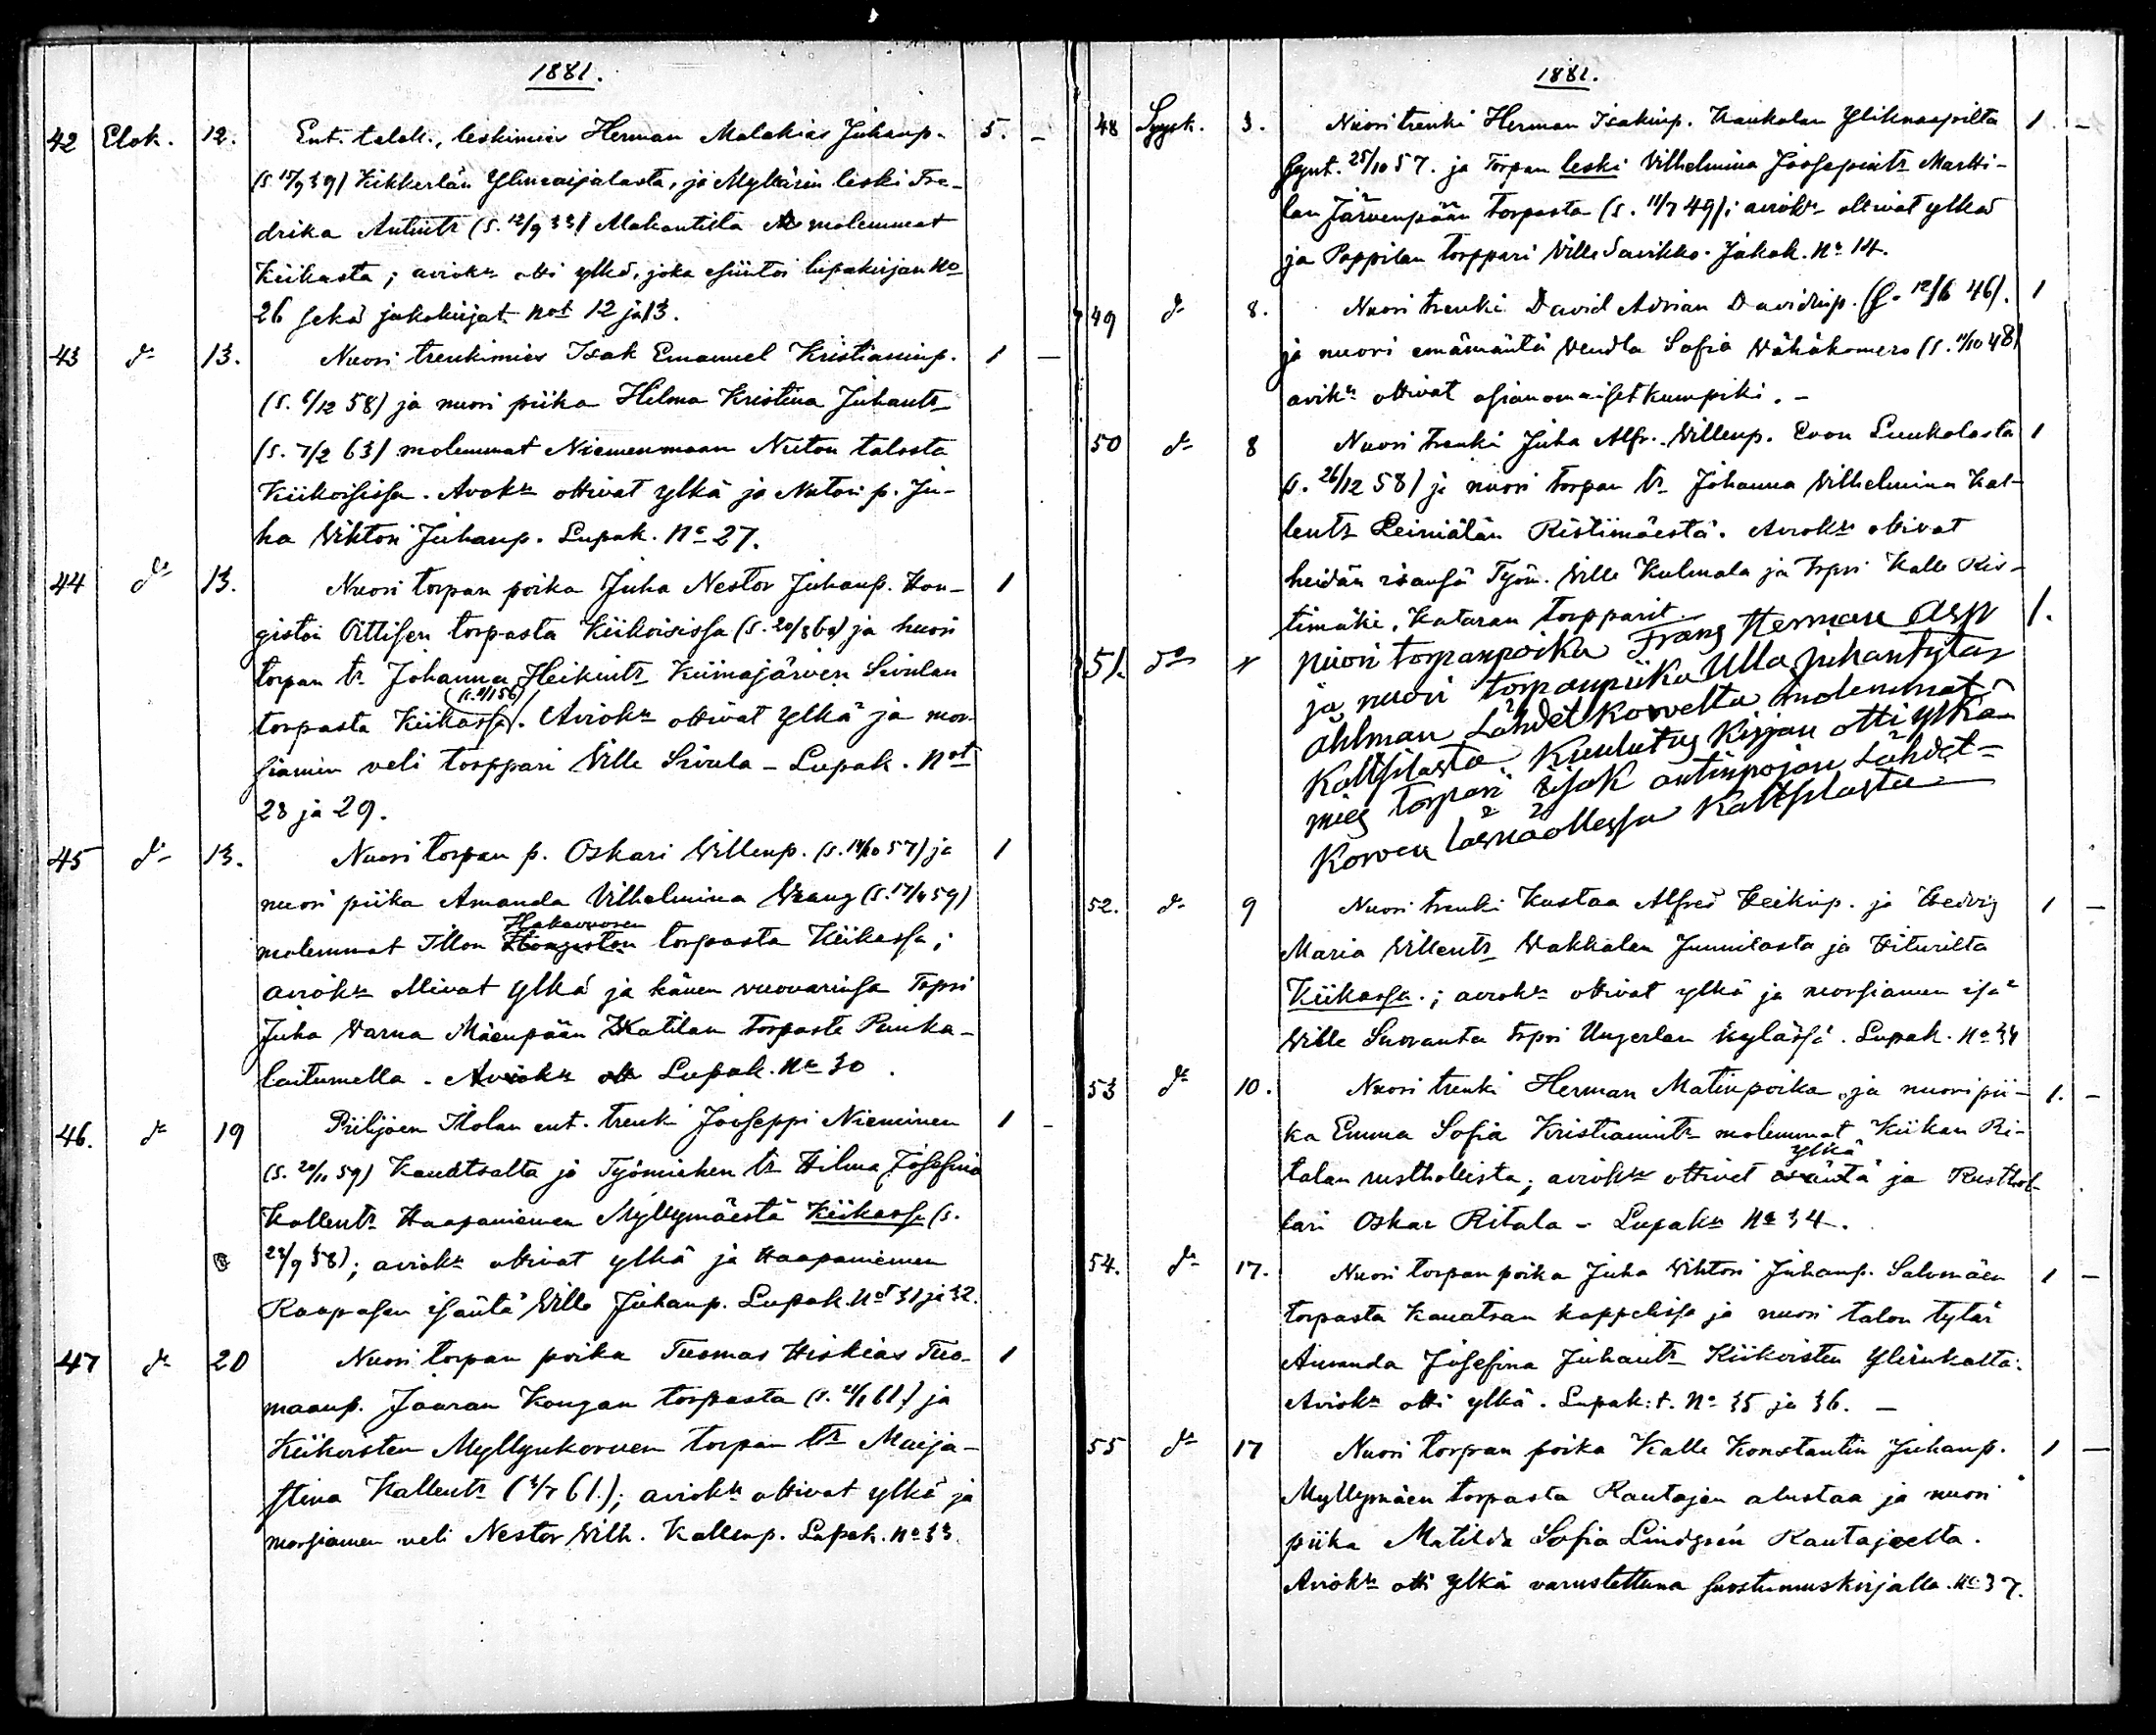 1881.
42 Elok. 12. Ent. talok., leskimies Herman Malakias Juhanp. 5. -
(s. 15/9 39) Kikkerlän Ylineaijalasta, ja Myllärin leski Fre-
drika Antintr (s. 12/9 33) Makantilta molemmat
Kiikasta; aviokn otti ylkä, joka esiintoi lupakirjan No
26 sekä jakokirjat not 12 ja 13.
43 do 13. Nuori trenkimies Isak Emanuel Kristianinp. 1 -
(s. 6/12 58) ja nuori piika Helma Kristina Juhantr
(s. 7/2 63) molemmat Niemenmaan Nuton talosta
Kiikoisissa. Aviokn ottivat ylkä ja Nutori p. Ju-
ha Wihtori Juhanp. Lupak. No 27.
44 do 13. Nuori torpan poika Juha Nestor Juhanp. Hon- 1
giston Ottisen torpasta Kiikoisissa (s. 20/8 60) ja nuori
torpan tr Johanna Heikintr Kiimajärven Sivulan
(s. 8/1 56)
torpasta Kiikassa. Aviokn ottivat ylkä ja mor-
siamen veli torppari Wille Sivula - Lupak. Not
28 ja 29.
45 do 13. Nuori torpan p. Oskari Willenp. (s. 14/10 57) ja 1
nuori piika Amanda Vilhelmina Wrang (s. 17/4 59)
Hakauvoren
molemmat Illon Hongiston torpasta Kiikassa;
aviokn ottivat ylkä ja hänen vuovarinsa Tapri
Juha Warna Mäenpään Katilan torpasta Punka-
laitumella. Aviokn ott Lupak. No 30.
46. do 19 Piilijoen Ilolan ent. trenki Jooseppi Nieminen 1 -
(s. 20/11 59) Kauvatsalta ja Työmiehen tr Hilma Josefina
Kallentr Haapaniemen Myllymäestä Kiikassa (s.
23/9 58); aviokn ottivat ylkä ja Haapaniemen
Raapasen isäntä Wille Juhanp. Lupak. Not 31 ja 32.
47 do 20 Nuori torpan poika Tuomas Hiskias Tuo- 1
maanp. Jaaran Kongan torpasta (s. 21/1 61) ja
Kiikoisten Myllynkorven torpan tr Maija-
stina Kallentr (3/7 61.); aviokn ottivat ylkä ja
morsiamen veli Nestor Wilh. Kallenp. Lupak. No 33.
1881.
48 Syysk. 3. Nuori trenki Herman Isakinp. Kaukolan Yliknaapilta 1. -
synt. 25/10 57. ja torpan leski Vilhelmina Joosepintr Martti-
lan Järvenpään torpasta (s. 11/7 49); aviokn ottivat ylkä
ja Pappilan torppari Wille Savikko. Jakok. No 14.
49 do 8. Nuori trenki David Adrian Davidinp. (s. 12/6 46). 1
ja nuori emämäntä Wendla Sofia Wähäkomero (s. 11/10 48)
avikn ottivat asianomaiset kumpiki. -
50 do 8 Nuori trenki Juha Alfr. Willenp. Evon Luukolasta 1
(s. 26/12 58) ja nuori torpan tr Johanna Wilhelmina Kal-
lentr Leiniälän Ristimäestä. Aviokn ottivat
heidän isänsä Työm. Wille Kulmala ja Trpri Kalle Ris-
timäki, Kataran torpparit.
51. do nuori torpanpoika Frans Herman Asp 1.
ja nuori torpanpiika Ulla juhantytär
Åhlman Lähdet korvelta molemmat
Kaltsilasta Kuulutus kirjan otti ylkä
mies torpari iisak antinpojan Lähdet-
Korven läsnäollessa Kaltsilasta
52. do 9 Nuori trenki Kustaa Alfred Heikinp. ja Hedvig 1 -
Maria Willentr Wakkalan Junnilasta ja Hiturilta
Kiikassa.; aviokn ottivat ylkä ja morsiamen isä
Wille Suoranta trpri Ungerlan kylässä. Lupak. No 34
53 do 10. Nuori trenki Herman Matinpoika ja nuori pii- 1. -
ka Emma Sofia Kristianintr molemmat Kiikan Ri-
ylkä
talan rusthollista; aviokn ottivat isäntä ja Rusthol-
lari Oskar Ritala - Lupakn No 34.
54. do 17. Nuori torpan poika Juha Wihtori Juhanp. Salomäen 1 -
torpasta Kauvatsan kappelissa ja nuori talon tytär
Amanda Josefina Juhantr Kiikoisten Ylirukalta.
Aviokn otti ylkä. Lupak:t. No 35 ja 36. -
55 do 17 Nuori torpan poika Kalle Konstantin Juhanp. 1 -
Myllymäen torpasta Rautajoen alustaa ja nuori
piika Matilda Sofia Lindgren Rautajoelta.
Aviokn otti ylkä varustettuna suostumuskirjalla. No 37.